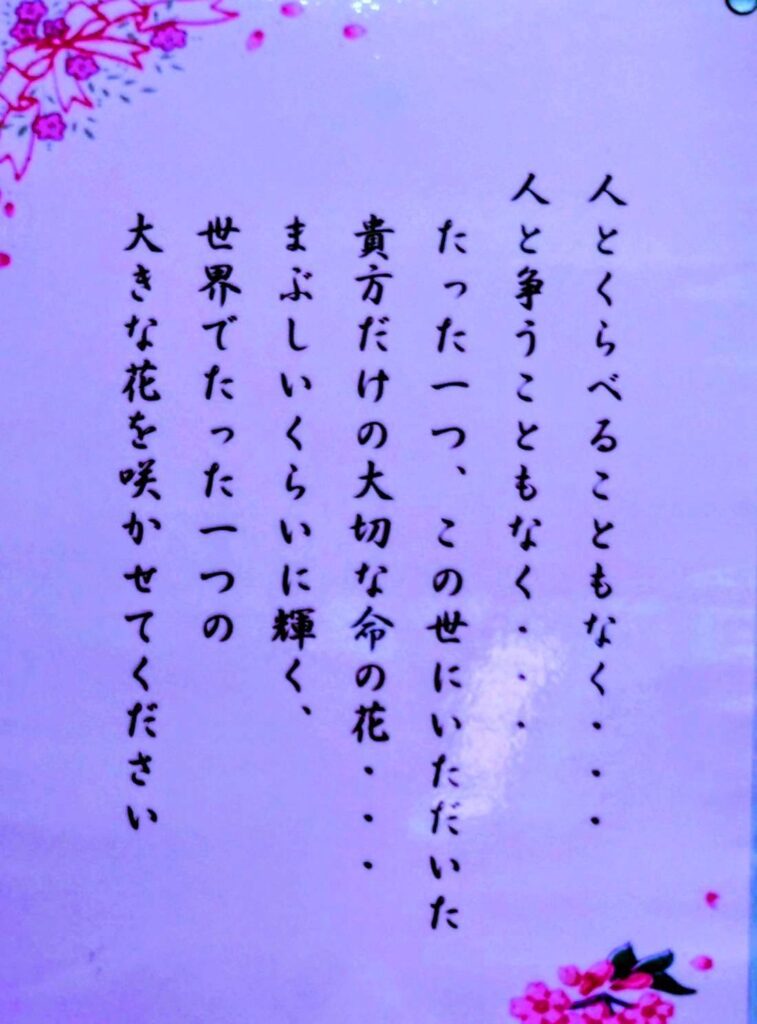 人とくらべることもなく・・・
人と争うこともなく・・・
たった一つ、この世にいただいた
貴方だけの大切な命の花・・・
まぶしいくらいに輝く、
世界でたった一つの
大きな花を咲かせてください